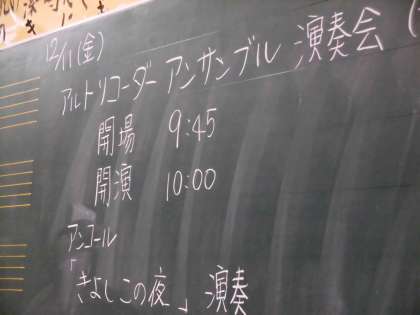 12/11(金)
アルトリコーダーアンサンブル 演奏会 (
開場 9:45
開演 10:00
アンコール
「きよしこの夜」演奏